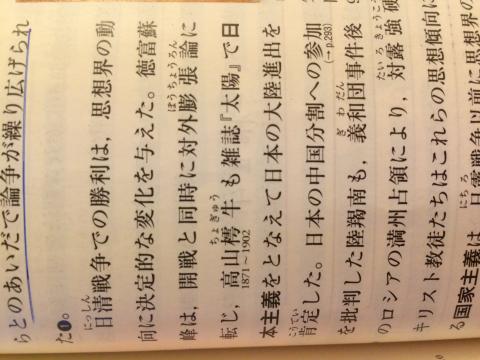 らとのあいだで論争が繰り広げられ
た❶。
にっしん
日清戦争での勝利は，思想界の動
向に決定的な変化を与えた。徳富蘇
ぼうちょうろん
峰は，開戦と同時に対外膨張論に
ちょぎゅう
転じ，高山樗牛も雑誌『太陽』で日
1871〜1902
本主義をとなえて日本の大陸進出を
こうてい
肯定した。日本の中国分割への参加
(→p.293)
ぎわだん
を批判した陸羯南も，義和団事件後
たいろきょうこう
のロシアの満州占領により，対露強硬
キリスト教徒たちはこれらの思想傾向に
にちろ
る国家主義は，日露戦争以前に思想界の